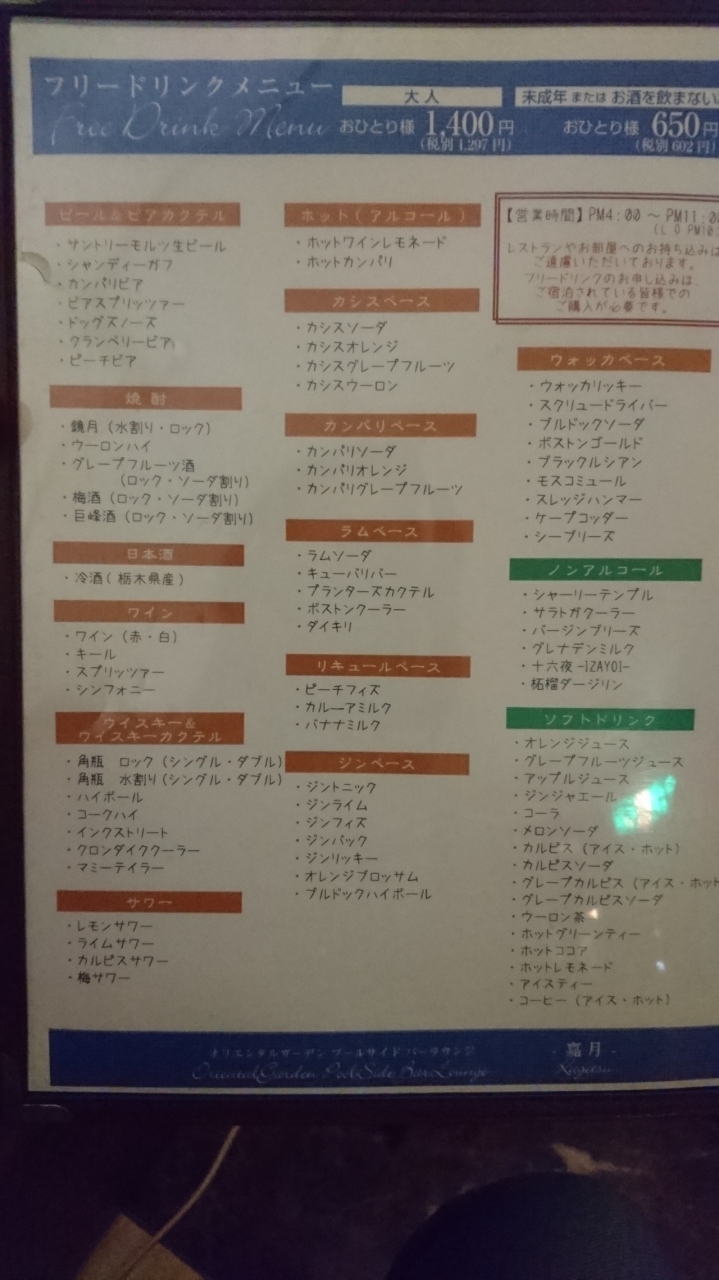 フリードリンクメニュー
Free Drink Menu
大人
おひとり様 1,400円
(税別 1,297円)
未成年 または お酒を飲まない
おひとり様 650円
(税別 602円)
ビール&ビアカクテル
・サントリーモルツ生ビール
・シャンディーガフ
・カンパリビア
・ビアスプリッツァー
・ドッグズノーズ
・クランベリービア
・ピーチビア
焼酎
・鏡月(水割り・ロック)
・ウーロンハイ
・グレープフルーツ酒
(ロック・ソーダ割り)
・梅酒(ロック・ソーダ割り)
・巨峰酒(ロック・ソーダ割り)
日本酒
・冷酒(栃木県産)
ワイン
・ワイン(赤・白)
・キール
・スプリッツァー
・シンフォニー
ウイスキー&
ウイスキーカクテル
・角瓶 ロック(シングル・ダブル)
・角瓶 水割り(シングル・ダブル)
・ハイボール
・コークハイ
・インクストリート
・クロンダイククーラー
・マミーテイラー
サワー
・レモンサワー
・ライムサワー
・カルピスサワー
・梅サワー
ホット(アルコール)
・ホットワインレモネード
・ホットカンパリ
カシスベース
・カシスソーダ
・カシスオレンジ
・カシスグレープフルーツ
・カシスウーロン
カンパリベース
・カンパリソーダ
・カンパリオレンジ
・カンパリグレープフルーツ
ラムベース
・ラムソーダ
・キューバリバー
・プランターズカクテル
・ボストンクーラー
・ダイキリ
リキュールベース
・ピーチフィズ
・カルーアミルク
・バナナミルク
ジンベース
・ジントニック
・ジンライム
・ジンフィズ
・ジンバック
・ジンリッキー
・オレンジブロッサム
・ブルドックハイボール
【営業時間】PM4:00 ~ PM11:00
(L O PM10
レストランやお部屋へのお持ち込みは
ご遠慮いただいております。
フリードリンクのお申し込みは、
ご宿泊されている皆様での
ご購入が必要です。
ウォッカベース
・ウォッカリッキー
・スクリュードライバー
・ブルドックソーダ
・ボストンゴールド
・ブラックルシアン
・モスコミュール
・スレッジハンマー
・ケープコッダー
・シーブリーズ
ノンアルコール
・シャーリーテンプル
・サラトガクーラー
・バージンブリーズ
・グレナデンミルク
・十六夜 -IZAYOI-
・柘榴ダージリン
ソフトドリンク
・オレンジジュース
・グレープフルーツジュース
・アップルジュース
・ジンジャエール
・コーラ
・メロンソーダ
・カルピス(アイス・ホット)
・カルピスソーダ
・グレープカルピス(アイス・ホット
・グレープカルピスソーダ
・ウーロン茶
・ホットグリーンティー
・ホットココア
・ホットレモネード
・アイスティー
・コーヒー(アイス・ホット)
オリエンタルガーデン プールサイド バーラウンジ
Oriental Garden Pool Side Bar Lounge
- 嘉月 -
Kagetsu